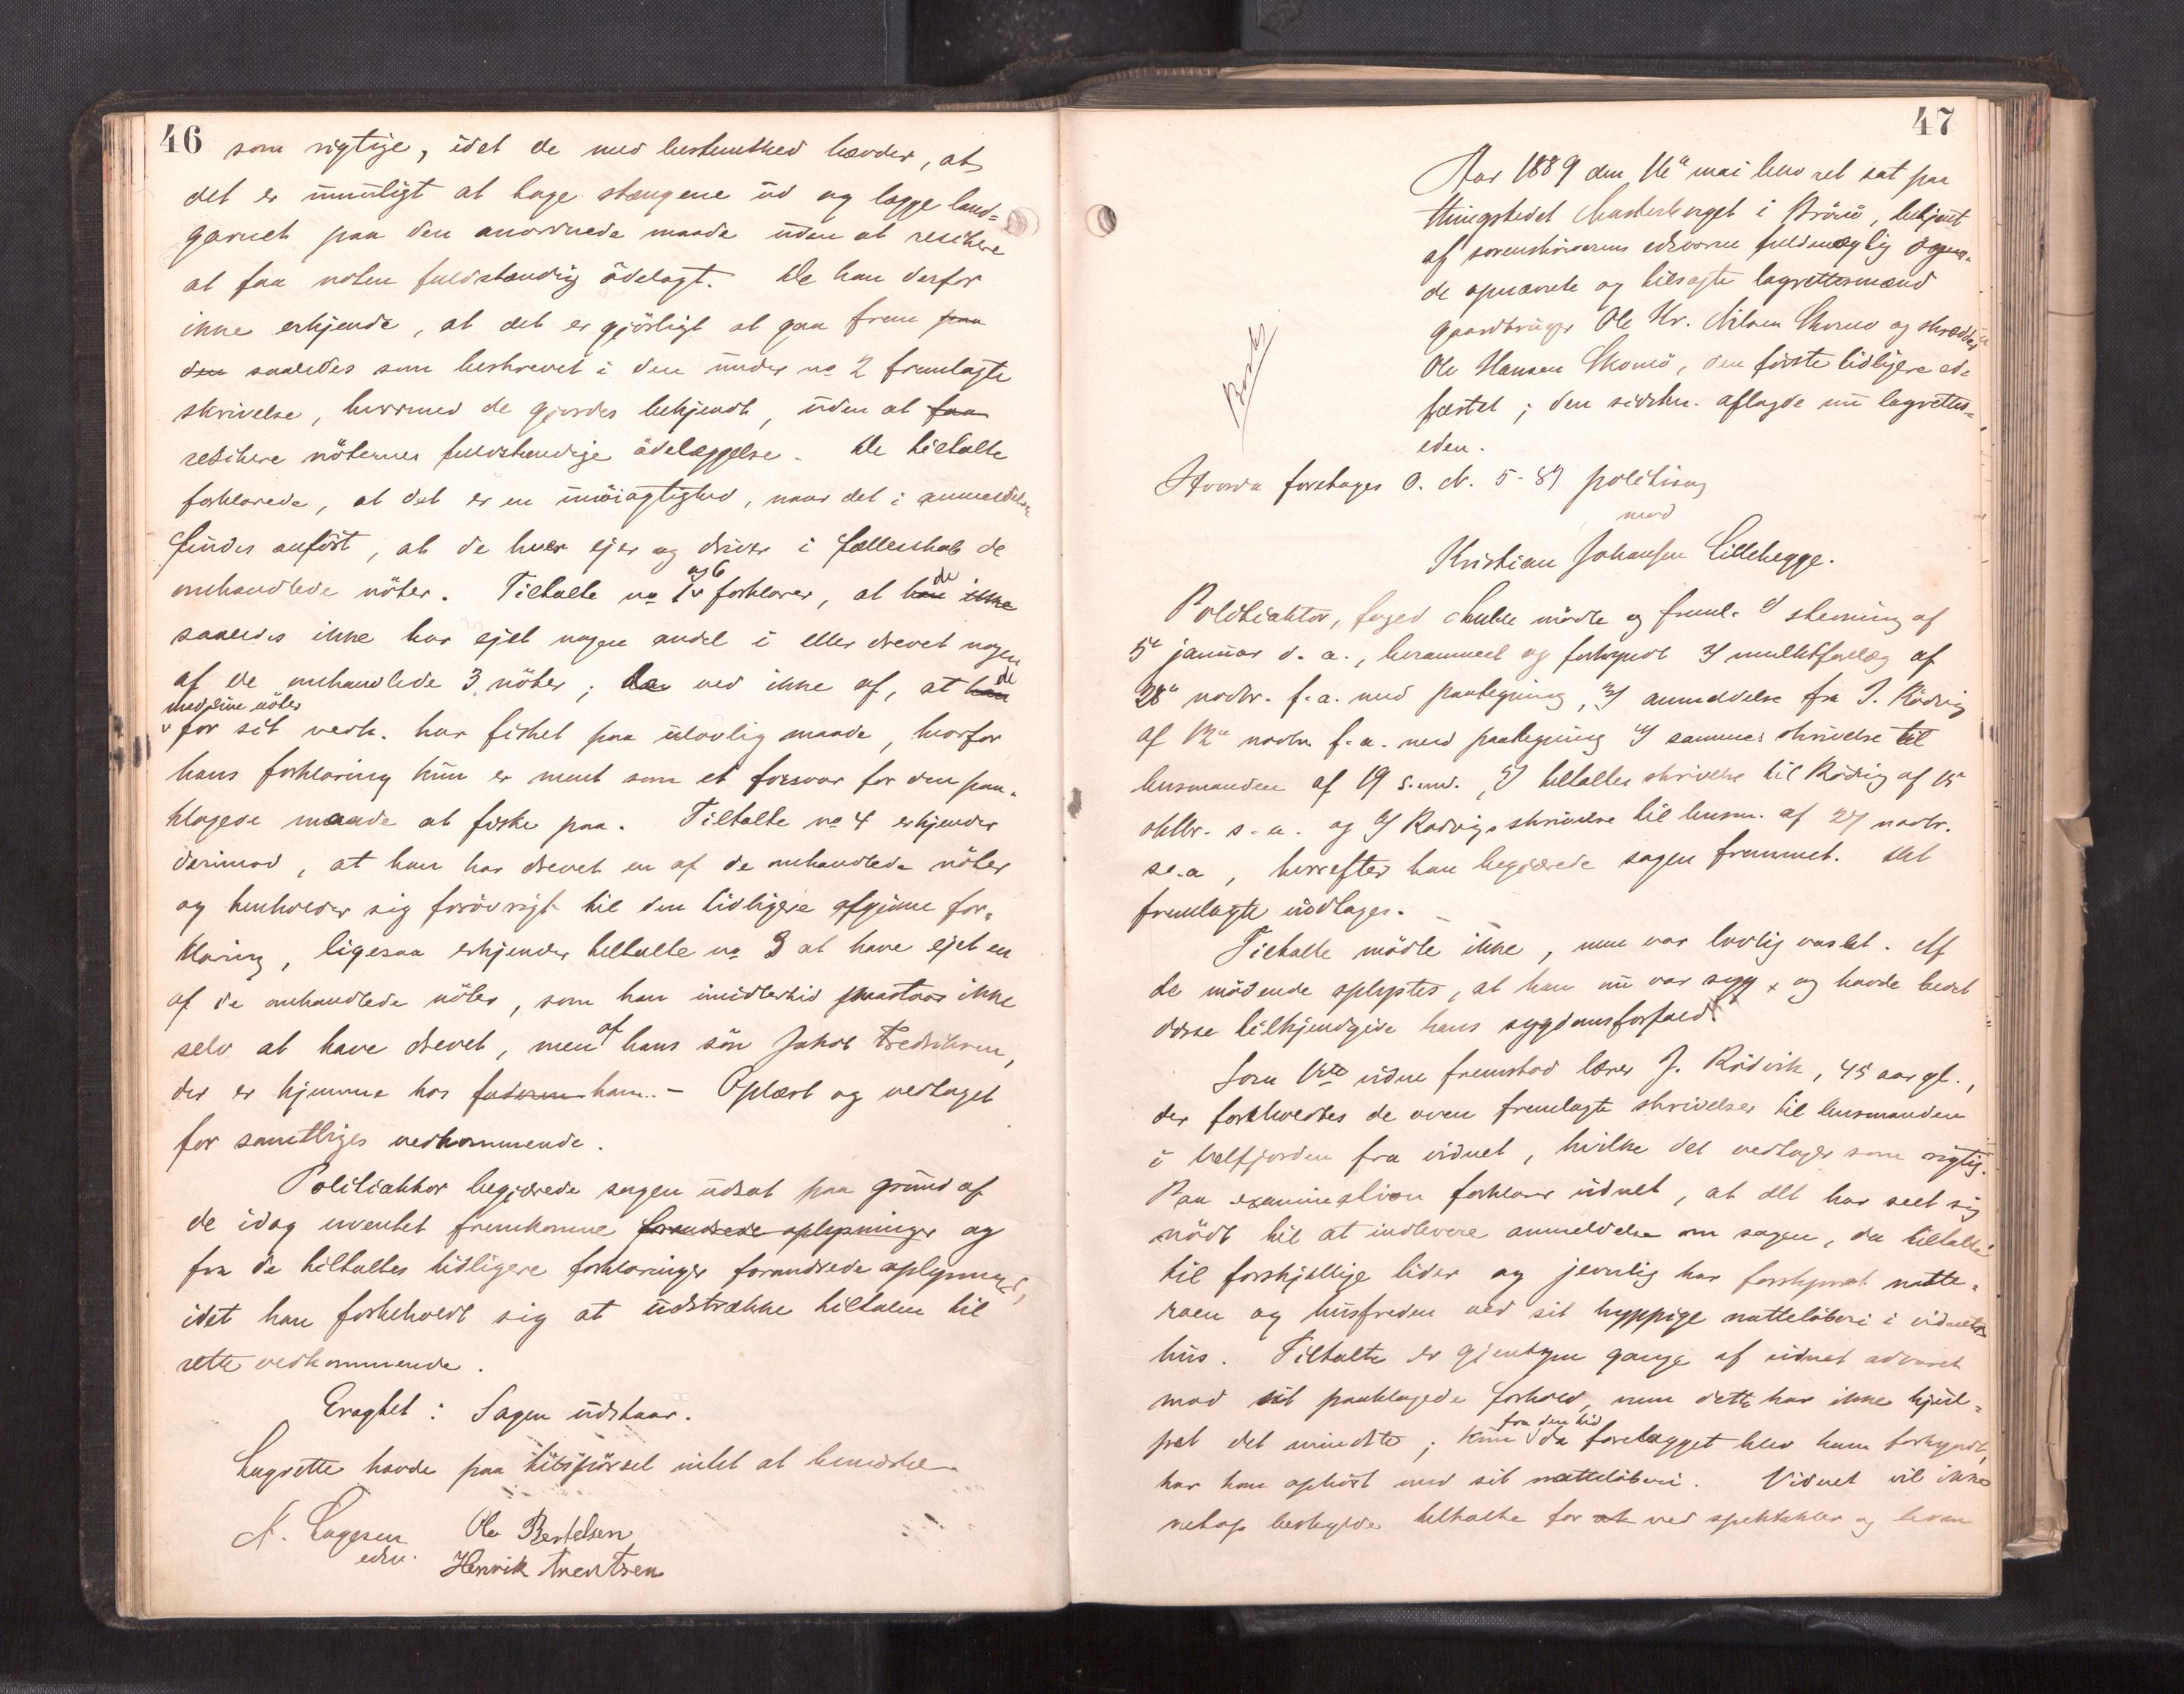 46
som rigtige, idet de med bestemthed hævder, at
det er umuligt at tage stængene ud og lægge land=
garnet paa den anordnede maade uden at resikere
at faa noten fuldstændig ödelagt. De kan derfor
ikke erkjende, at det er gjörligt at gaa frem paa
den saaledes som beskrevet i den under no 2 fremlagte
skrivelse, hvormed de gjordes bekjendt, uden at faa
resikere nöternes fuldstændige ödelæggelse. De tiltalte
forklarede, at det er en unöiagtighed, naar det i anmeldelsen
findes anfört, at de hver ejer og driver i fællesskab de
omhandlede nöter. Tiltalte no 1 og 6 forklarer, at han de ikke
saaledes ikke har ejet nogen andel i eller drevet nogen
af de omhandlede 3 nöter; ved ikke af, at han de
med sine nöter
for sit vedk. har fisket paa ulovlig maade, hvorfor
hans forklaring kun er ment som et forsvar for den paa=
klagede maade at fiske paa. Tiltalte no 4 erkjender
derimod, at han har drevet en af de omhandlede nöter
og henholder sig forövrigt til den tidligere afgivne for=
klaring, ligesaa erkjender tiltalte no 3 at have ejet en
af de omhandlede nöter, som han imidlertid paastaar ikke
selv at have drevet, men af hans sön Jakob Fredriksen,
der er hjemme hos faderen ham. — Oplæst og vedtaget
for samtliges vedkommende.
Politiaktor begjærede sagen udsat paa grund af
de idag uventet fremkomne forandrede oplysninger og
fra de tiltaltes tidligere forklaringer forandrede oplysninger,
idet han forbeholdt sig at udstrække tiltalen til
rette vedkommende.
Eragtet: Sagen udstaar.
Lagrette havde paa tilspörsel intet at bemærke
N. Lagesen Ole Bertelsen
edsv. Henrik
47
Aar 1889 den 16de mai blev ret sat paa
thingstedet i Brönö, betjent
af sorenskriverens edsvorne fuldmægtig
de opnævnte og tilsagte lagrettesmænd
gaardbruger Ole Kr. Nilsen og skrædder
Ole Hansen, den förste tidligere ed=
fæstet; den sidstn. aflagde nu lagrettes=
eden.
Hvorda foretages O. N. 5-89 politisag
mod
Kristian Johansen Lillehegge.
Politiaktor, foged mödte og freml. 1) stevning af
5te januar d. a., berammet og forkyndt 2) mulktforelæg af
28de novbr. f. a. med paategning, 3) anmeldelse fra J. Rödvig
af 12te novbr. f. a. med paategning 4) sammes skrivelse til
lensmanden af 19 s. md., 5) tiltaltes skrivelse til Rödvig af 15
oktbr. s. a. og 6) Rødvigs skrivelse til lensm. af 27 novbr.
s. a, hvorefter han begjærede sagen fremmet. Det
fremlagte modtages.
Tiltalte mödte ikke, men var lovlig varslet. Af
de mödende oplystes, at han nu var syg og havde bedet
disse tilkjendgive hans sygdomsforfald.
Som 1ste vidne fremstod lærer J. Rödvik, 45 aar gl.,
der foreholdtes de oven fremlagte skrivelser til lensmanden
i Velfjorden fra vidnet, hvilke det vedtager som rigtig.
Paa examination forklarer vidnet, at det har seet sig
nödt til at indlevere anmeldelse om sagen, da tiltalte
til forskjellige tider og jevnlig har forstyrret natte=
roen og husfreden ved sit hyppige natteløberi i vidnets
hus. Tiltalte er gjentagne gange af vidnet advaret
mod sit paaklagede forhold, men dette har ikke hjul=
pet det mindste; kun fra den tid da forelægget blev ham forkyndt,
har han ophört med sit natteløberi. Vidnet vil ikke
netop beskylde tiltalte for at ved spektakler og